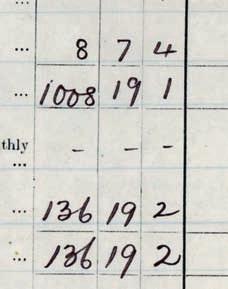 ... 8 7 4
... 1008 19 1
thly - - -
...
... 136 19 2
... 136 19 2